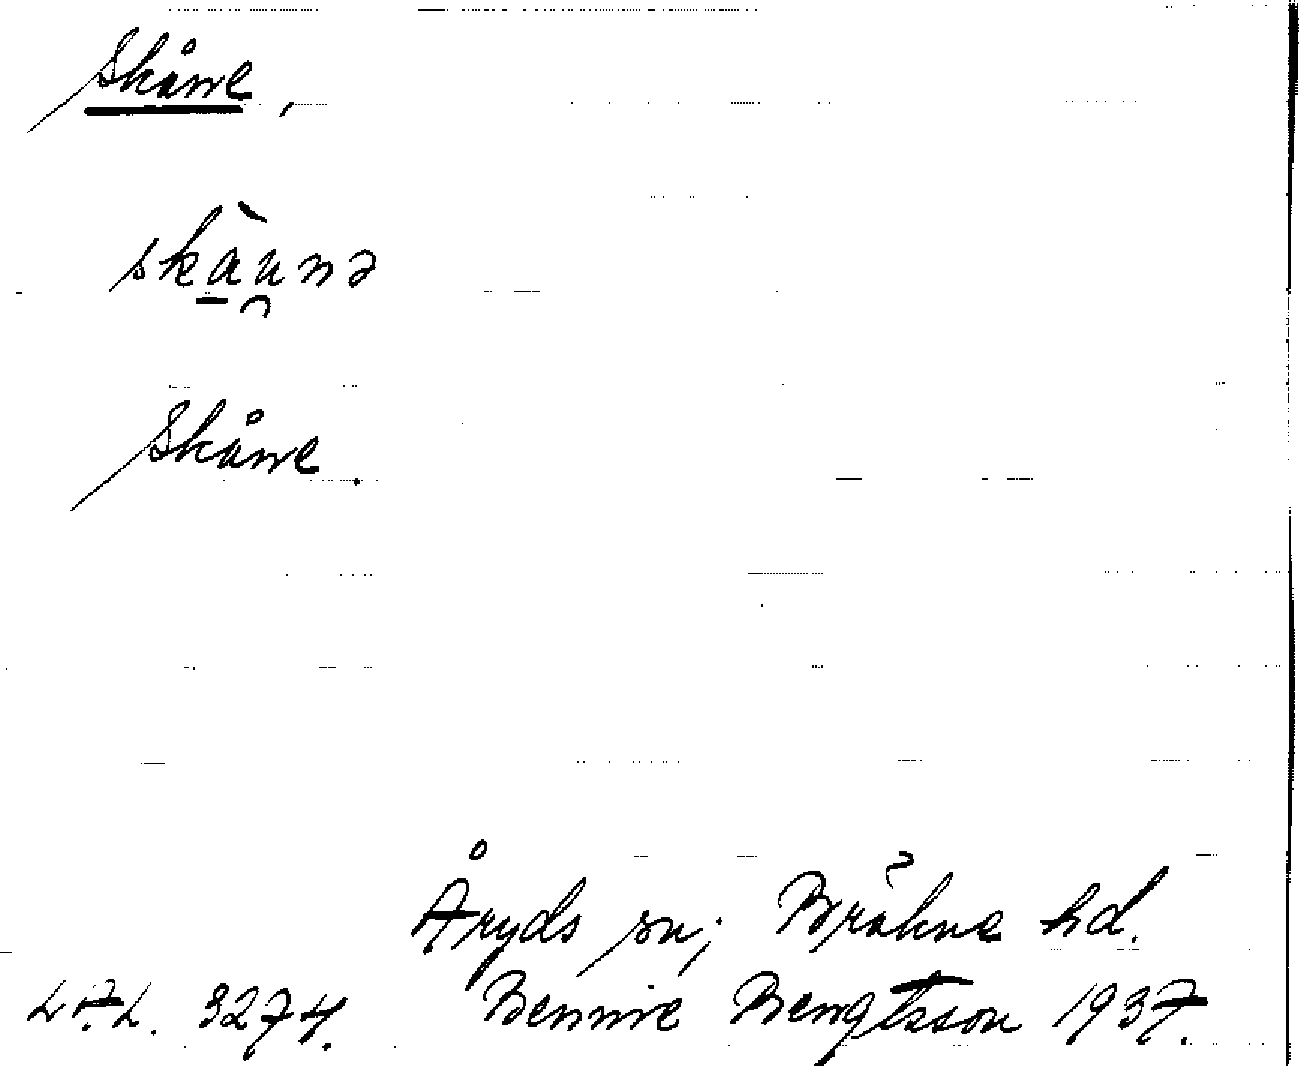 Skåne,
skàu̯nə
Skåne.
Åryds sn; Bräkne hd.
L.F.L. 3274. Bennie Bengtsson 1937.